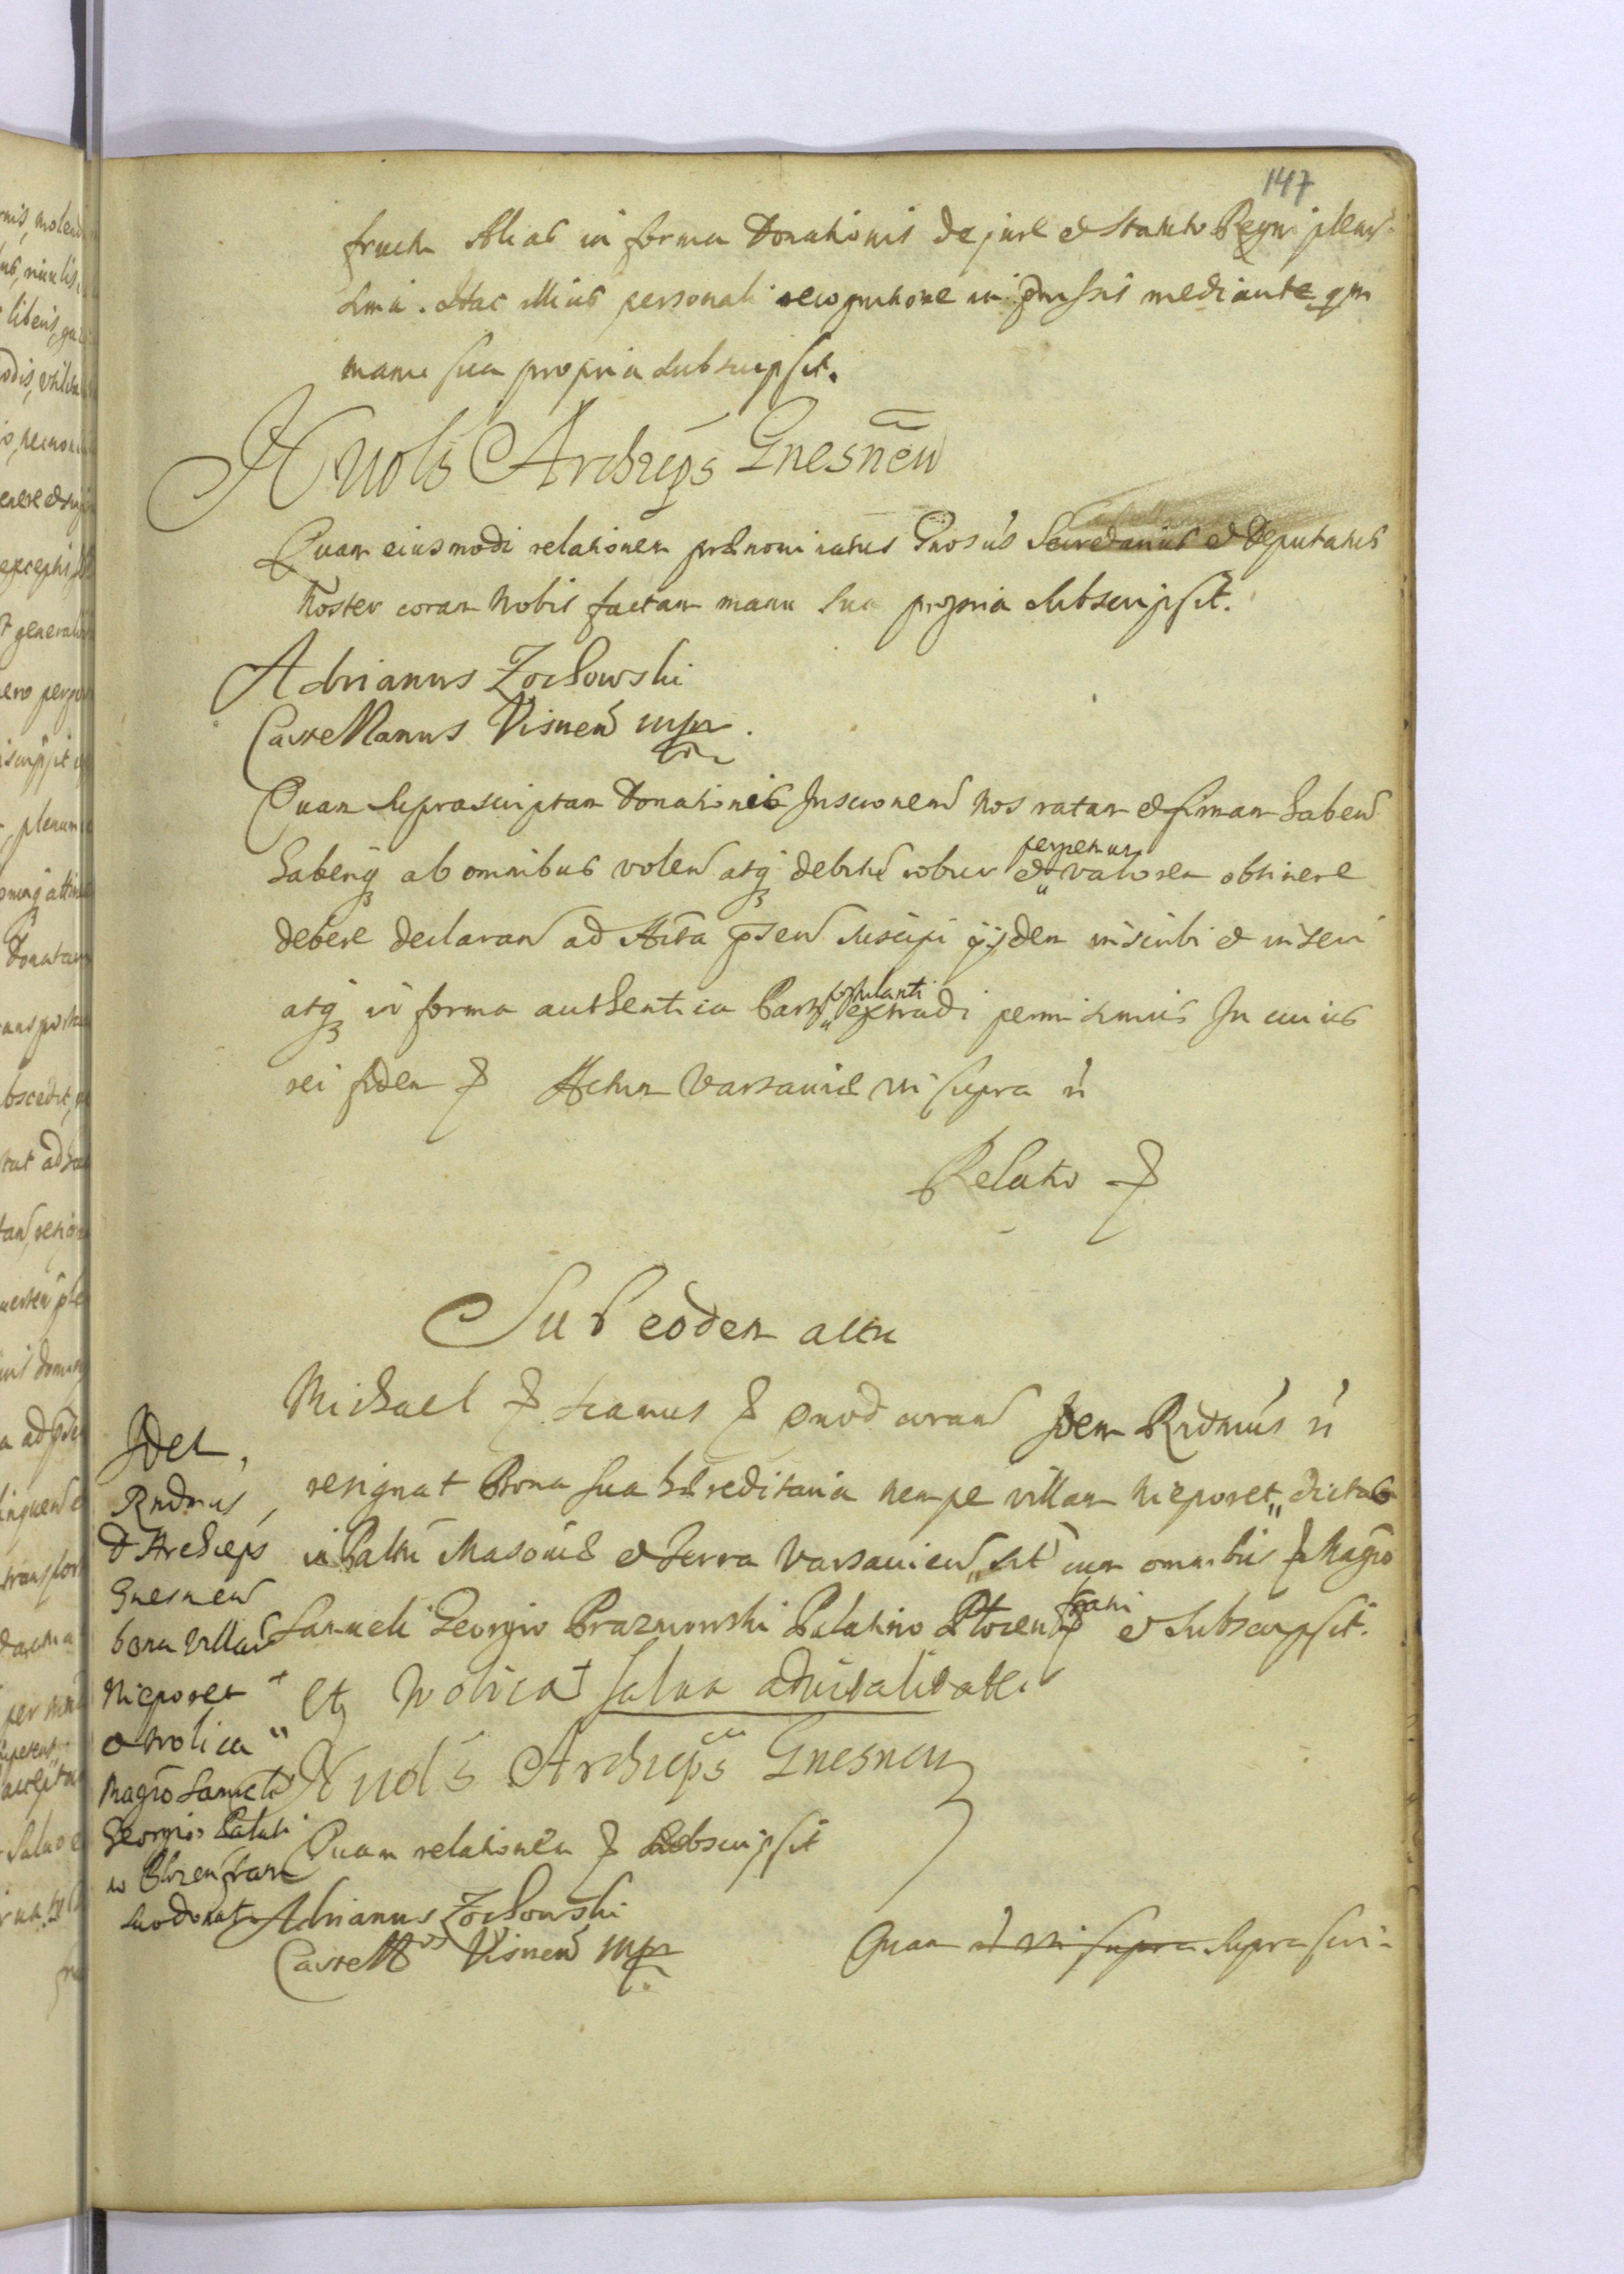 147
fructu Alias in forma Donationis de jure et Statuto Regni plenis-
sima. Hac illius personali recognitione in pmssis mediante qm
manu sua propria subscripsit.
Nicols Archieps Gnesnen
Quam eiusmodi relationem prænominatus Gnosus Secretarius et Deputatus
Noster coram Nobis factam manu sua propria subscripsit.
Adrianus Zochowski
Castellanus Visnen mpr.
Quam suprascriptam Donationis Inscrionem Nos ratam et firmam haben
haberiq ab omnibus volen atq debitu robur et perpetuu valorem obtinere
debere declaran ad Acta pden suscipi ijsdem inscribi et inseri
atq in forma authentica Parti postulanti extradi permisimus In cuius
rei fidem &
Actum Varsaviæ ut supra n
Relatio &
Sub eodem actu
Michael & Sanus & quod coram Idem Rndmus n
resignat Bona sua hæreditaria nempe villam Nieporet dictas
in Paltu Masoviæ et terra Varsavien sit cum omnibus & Magco
Samueli Georgio Prazmowski Palatino Plocen fratri et subscripsit.
et Wolica salva advitalitate
Nicols Archieps Gnesnen
Quam relationem & subscripsit
Adrianus Zochowski
Castell us Visnen mpr
Quam ut supra suprascri-
Idem
Rndmus
D Archieps
Gnesnen
bona Villas
Nieporet
et Wolica
Magco Samueli
Georgio Palati
no Plocen fratri
suo donat